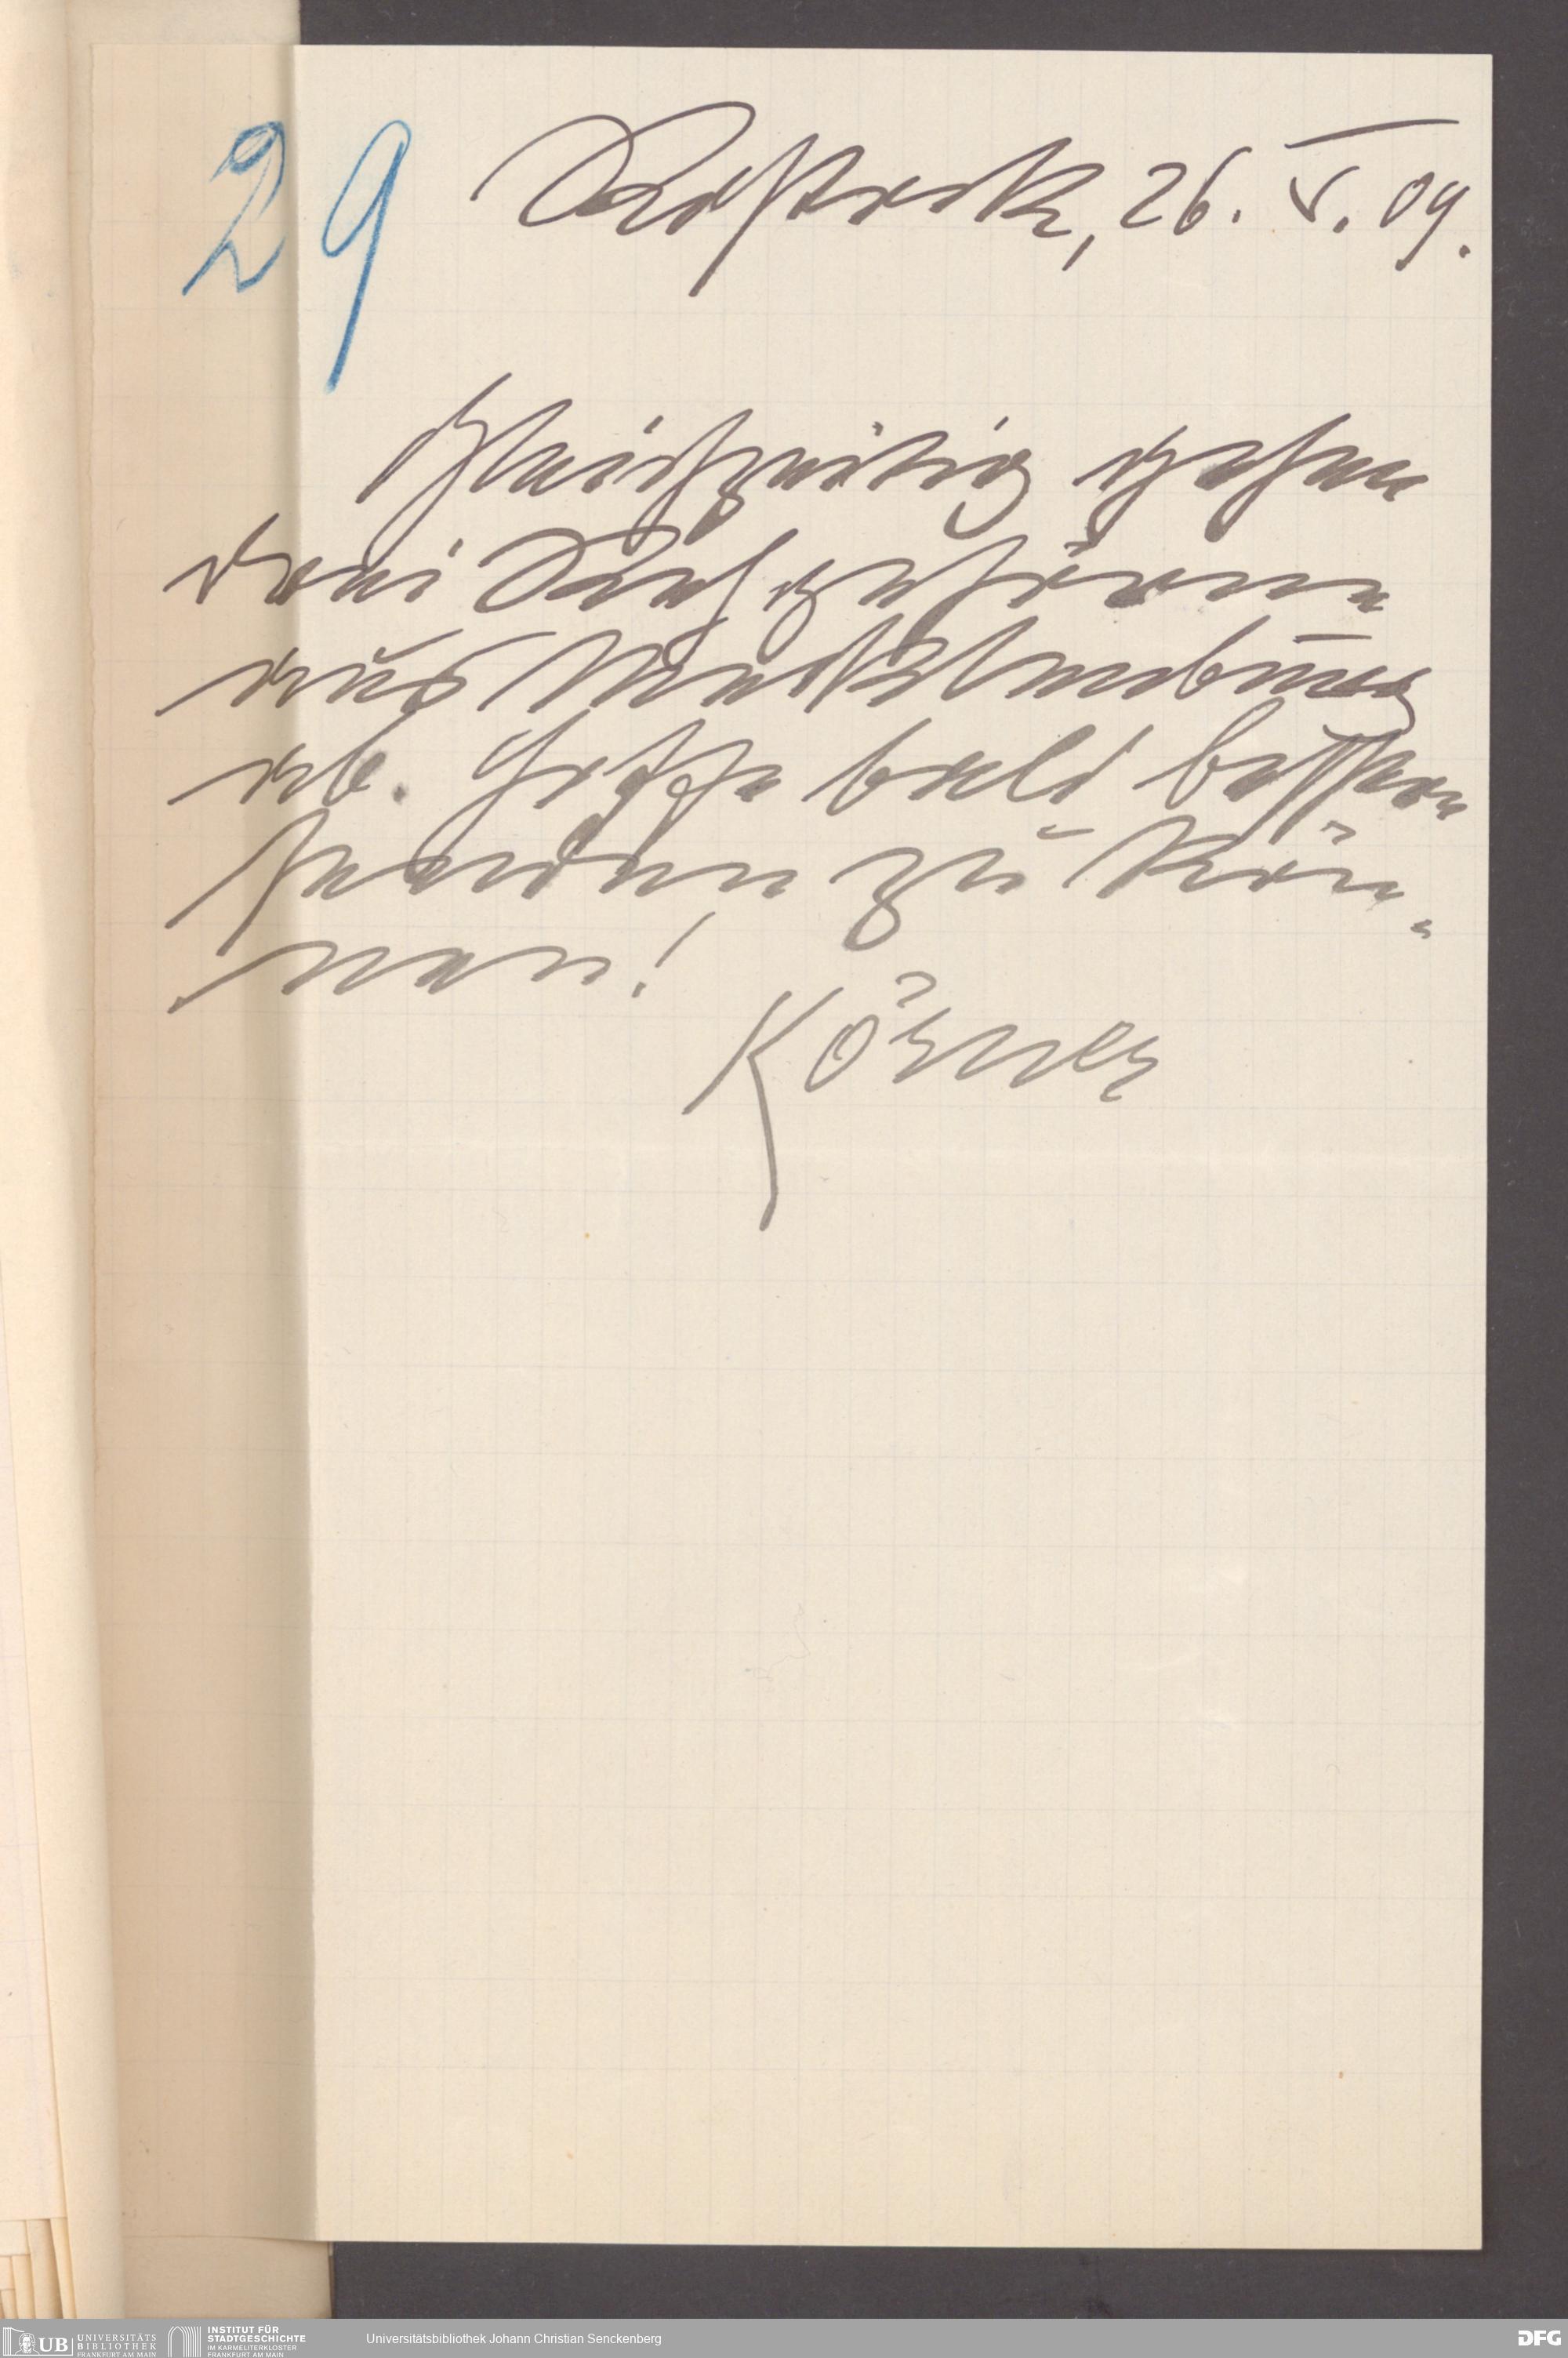 29
Rostock, 26. V. 09.
Gleichzeitig gehen
drei Photographieen
aus Mecklenburg
ab. Hoffe bald bessere
senden zu kön-
nen!
Körner
UB UNIVERSITÄTS
BIBLIOTHEK
FRANKFURT AM MAIN
INSTITUT FÜR
STADTGESCHICHTE
IM KARMELITERKLOSTER
FRANKFURT AM MAIN
Universitätsbibliothek Johann Christian Senckenberg
DFG